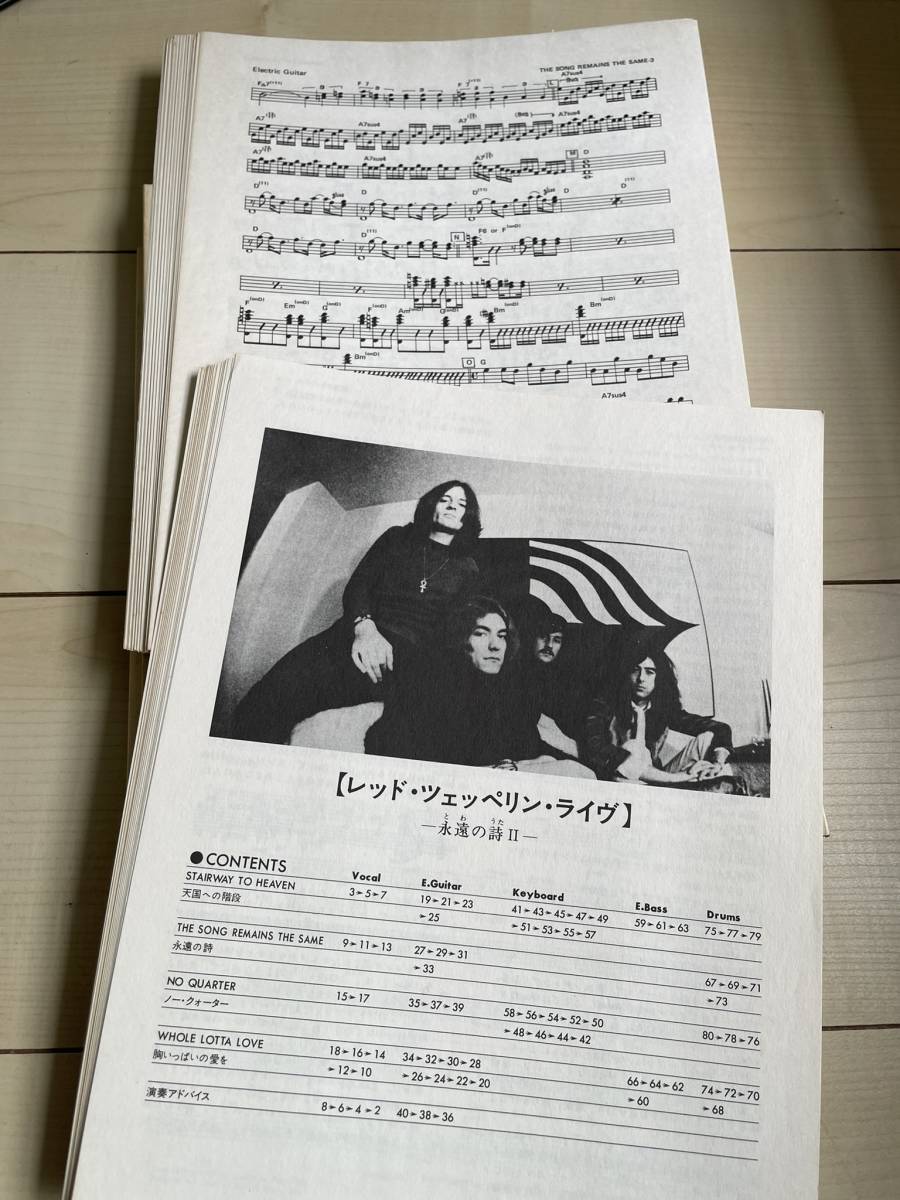 Electric Guitar
THE SONG REMAINS THE SAME-3
A7sus4
A7sus4 A7sus4
A7sus4
D
D D D
D N F6 or F(onD)
F(onD) Em G(onD) F(onD) Am(onD) Bm(onD) Bm
Bm(onD) O G
A7sus4
【レッド・ツェッペリン・ライヴ】
とわ うた
—永遠の詩II—
●CONTENTS
Vocal E.Guitar Keyboard E.Bass Drums
STAIRWAY TO HEAVEN 3►5►7 19►21►23 41►43►45►47►49 59►61►63 75►77►79
天国への階段 ►25 ►51►53►55►57
THE SONG REMAINS THE SAME 9►11►13 27►29►31 67►69►71
永遠の詩 ►33 ►73
NO QUARTER 15►17 35►37►39 58►56►54►52►50 80►78►76
ノー・クォーター ►48►46►44►42
WHOLE LOTTA LOVE 18►16►14 34►32►30►28 66►64►62 74►72►70
胸いっぱいの愛を ►12►10 ►26►24►22►20 ►60 ►68
演奏アドバイス 8►6►4►2 40►38►36